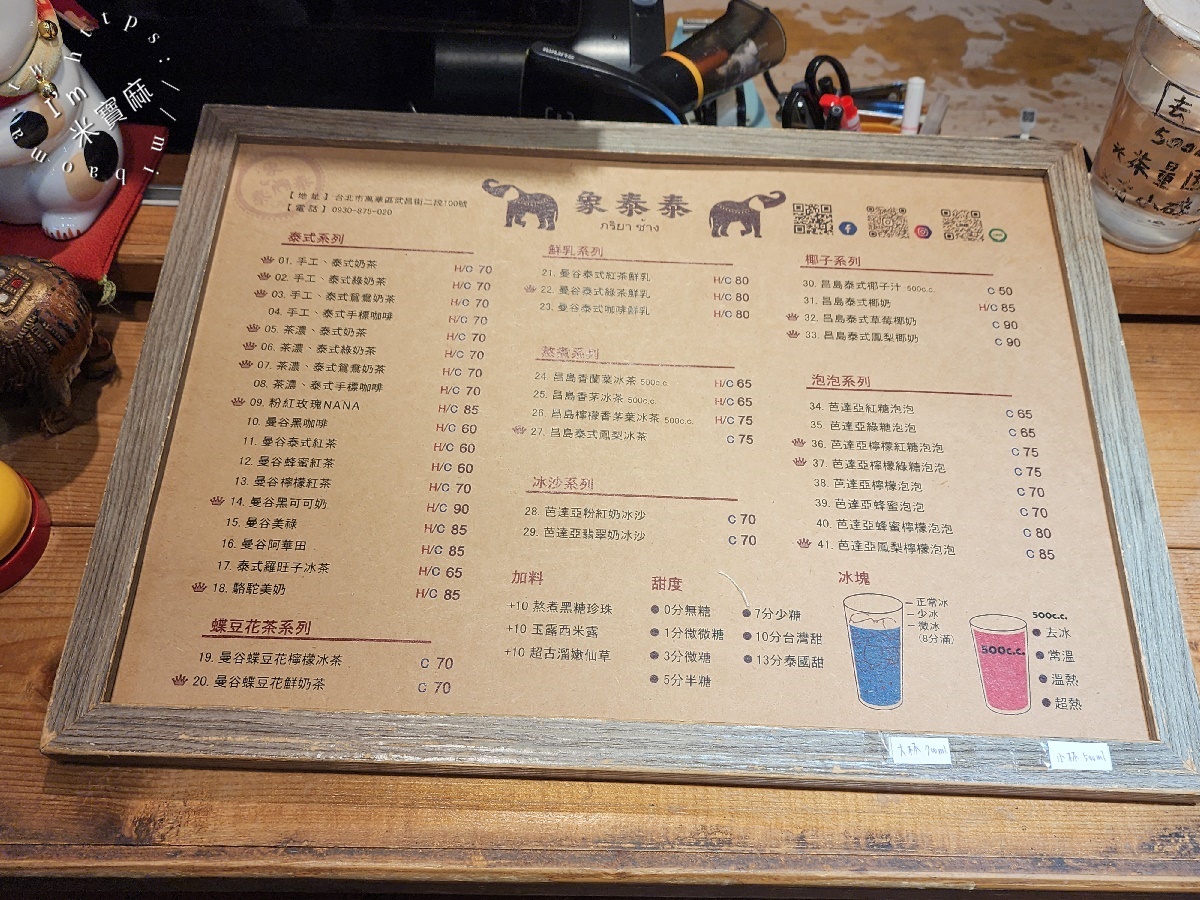 https://mibaomarm
米寶麻
【地址】台北市萬華區武昌街二段100號
【電話】0930-875-020
象泰泰
泰式系列
01. 手工、泰式奶茶 H/C 70
02. 手工、泰式綠奶茶 H/C 70
03. 手工、泰式鴛鴦奶茶 H/C 70
04. 手工、泰式手標咖啡 H/C 70
05. 茶濃、泰式奶茶 H/C 70
06. 茶濃、泰式綠奶茶 H/C 70
07. 茶濃、泰式鴛鴦奶茶 H/C 70
08. 茶濃、泰式手標咖啡 H/C 70
09. 粉紅玫瑰NANA H/C 85
10. 曼谷黑咖啡 H/C 60
11. 曼谷泰式紅茶 H/C 60
12. 曼谷蜂蜜紅茶 H/C 60
13. 曼谷檸檬紅茶 H/C 70
14. 曼谷黑可可奶 H/C 90
15. 曼谷美祿 H/C 85
16. 曼谷阿華田 H/C 85
17. 泰式羅旺子冰茶 H/C 65
18. 駱駝美奶 H/C 85
蝶豆花茶系列
19. 曼谷蝶豆花檸檬冰茶 C 70
20. 曼谷蝶豆花鮮奶茶 C 70
鮮乳系列
21. 曼谷泰式紅茶鮮乳 H/C 80
22. 曼谷泰式綠茶鮮乳 H/C 80
23. 曼谷泰式咖啡鮮乳 H/C 80
熬煮系列
24. 昌島香蘭葉冰茶 500c.c. H/C 65
25. 昌島香茅冰茶 500c.c. H/C 65
26. 昌島檸檬香茅葉冰茶 500c.c. H/C 75
27. 昌島泰式鳳梨冰茶 C 75
冰沙系列
28. 芭達亞粉紅奶冰沙 C 70
29. 芭達亞翡翠奶冰沙 C 70
椰子系列
30. 昌島泰式椰子汁 500c.c. C 50
31. 昌島泰式椰奶 H/C 85
32. 昌島泰式草莓椰奶 C 90
33. 昌島泰式鳳梨椰奶 C 90
泡泡系列
34. 芭達亞紅糖泡泡 C 65
35. 芭達亞綠糖泡泡 C 65
36. 芭達亞檸檬紅糖泡泡 C 75
37. 芭達亞檸檬綠糖泡泡 C 75
38. 芭達亞檸檬泡泡 C 70
39. 芭達亞蜂蜜泡泡 C 70
40. 芭達亞蜂蜜檸檬泡泡 C 80
41. 芭達亞鳳梨檸檬泡泡 C 85
加料
+10 熬煮黑糖珍珠
+10 玉露西米露
+10 超古溜嫩仙草
甜度
0分無糖
1分微微糖
3分微糖
5分半糖
7分少糖
10分台灣甜
13分泰國甜
冰塊
正常冰
少冰
微冰
(8分滿)
500c.c.
500c.c.
去冰
常溫
溫熱
超熱
大杯 700ml
小杯 500ml
去